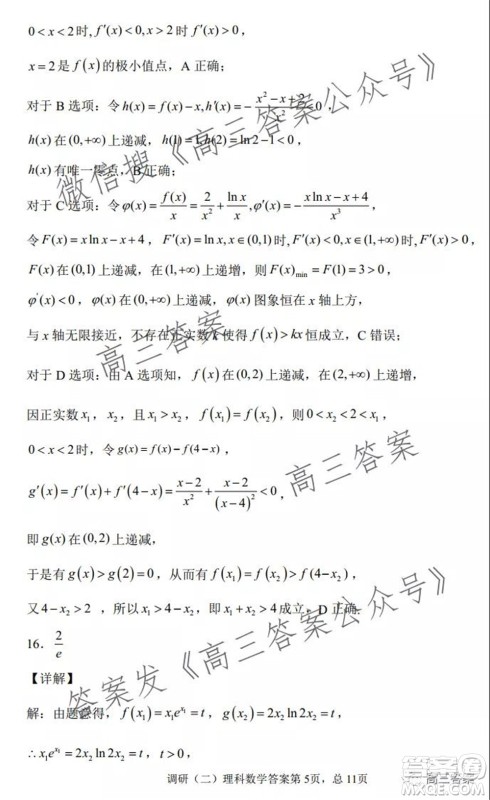 0 < x < 2 时, f′(x) < 0, x > 2 时 f′(x) > 0,
x = 2 是 f(x) 的极小值点，A 正确；
对于 B 选项：令 h(x) = f(x) − x, h′(x) = −(x² − x + 2)/x² < 0，
h(x) 在 (0,+∞) 上递减，h(1) = 1, h(2) = ln2 − 1 < 0，
h(x) 有唯一零点，B 正确；
对于 C 选项：令 φ(x) = f(x)/x = 2/x² + lnx/x, φ′(x) = −(xlnx − x + 4)/x³，
令 F(x) = xlnx − x + 4，F′(x) = lnx, x∈(0,1) 时, F′(x) < 0, x∈(1,+∞) 时, F′(x) > 0，
F(x) 在 (0,1) 上递减，在 (1,+∞) 上递增，则 F(x)min = F(1) = 3 > 0，
φ′(x) < 0，φ(x) 在 (0,+∞) 上递减，φ(x) 图象恒在 x 轴上方，
与 x 轴无限接近，不存在正实数 k 使得 f(x) > kx 恒成立，C 错误；
对于 D 选项：由 A 选项知，f(x) 在 (0,2) 上递减，在 (2,+∞) 上递增，
因正实数 x₁，x₂，且 x₁ > x₂，f(x₁) = f(x₂)，则 0 < x₂ < 2 < x₁，
0 < x < 2 时，令 g(x) = f(x) − f(4 − x)，
g′(x) = f′(x) + f′(4 − x) = (x − 2)/x² + (x − 2)/(x − 4)² < 0，
即 g(x) 在 (0,2) 上递减，
于是有 g(x) > g(2) = 0，从而有 f(x₁) = f(x₂) > f(4 − x₂)，
又 4 − x₂ > 2，所以 x₁ > 4 − x₂，即 x₁ + x₂ > 4 成立，D 正确.
16．2/e
【详解】
解：由题意得，f(x₁) = x₁e^{x₁} = t，g(x₂) = 2x₂ln2x₂ = t，
∴ x₁e^{x₁} = 2x₂ln2x₂ = t，t > 0，
调研（二）理科数学答案第 5页，总 11页
微信搜《高三答案公众号》
高三答案
高三答案
答案发《高三答案公众号》
高三答案